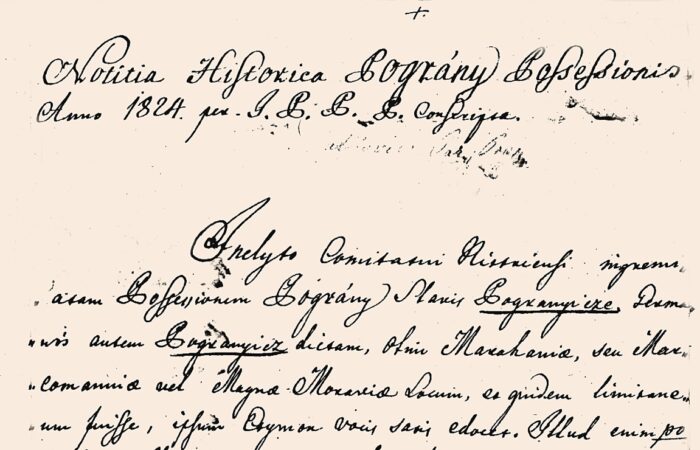 Notitia Historica Pográny Possessionis
Anno 1824. per. I. P. P. P. Conscripta.
Inclyto Comitatui Nittriensi ingremi-
atam Possessionem Pográny Slavis Pogranyicze, Germa-
nis autem Pogranyicz dictam, olim Marahaniæ, seu Mar-
comanniæ vel Magnæ Moraviæ Locum, eo quidem limitane-
um fuisse, ipsum Etymon vocis satis edocet. Illud enim po